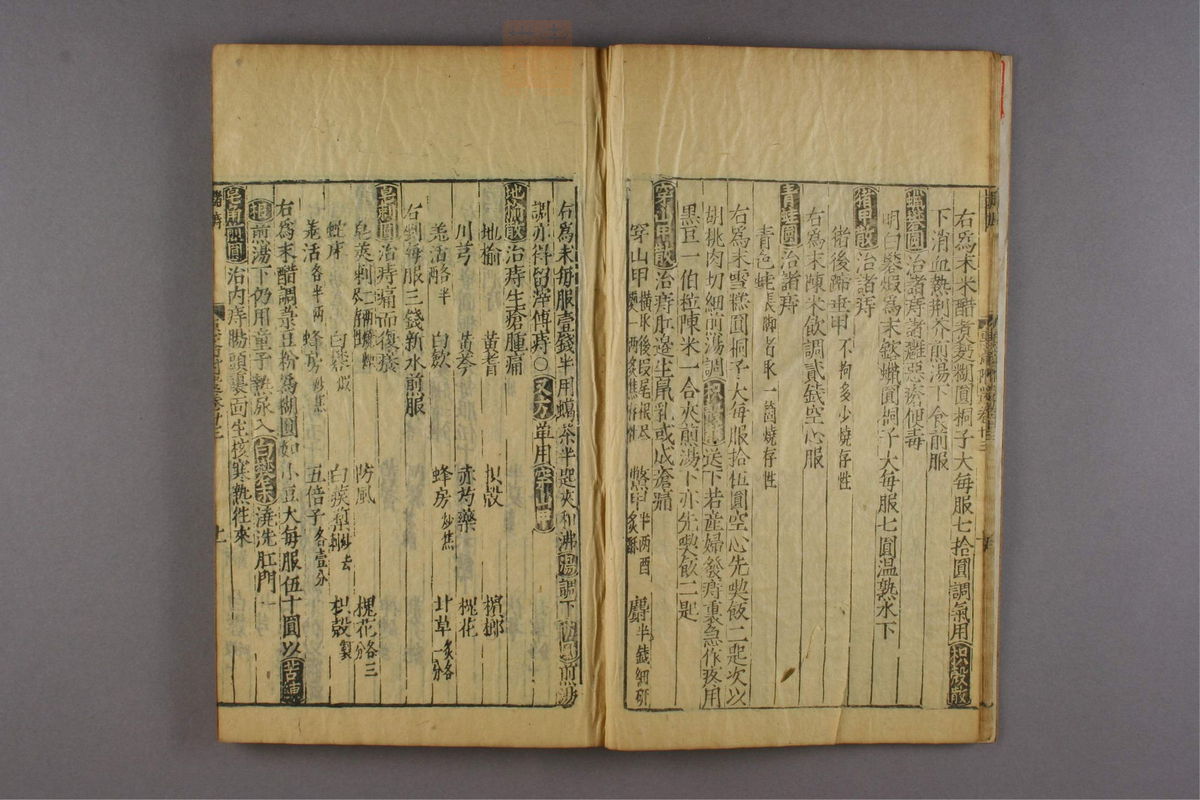 右爲末米醋煮麪糊圓桐子大每服七拾圓調氣用枳殼散
下消血熱荊芥煎湯下食前服
蠟礬圓治諸痔諸癰惡瘡便毒
明白礬煆爲末鎔蠟圓桐子大每服七圓溫熟水下
猪甲散治諸痔
猪後蹄垂甲不拘多少燒存性
右爲末陳米飲調貳錢空心服
青蛙圓治諸痔
青色蛙長脚者取一箇燒存性
右爲末雪糕圓桐子大每服拾伍圓空心先喫飯二匙次以
胡桃肉切細煎湯調枳殼散送下若産婦發痔裏急作疼用
黑豆一伯粒陳米一合夾煎湯下亦先喫飯二匙
穿山甲散治痔肛邊生鼠乳或成瘡痛
穿山甲橫取後段尾根尽 一兩炙焦存性 鱉甲半兩酒炙酥 麝半錢細研
右爲末每服壹錢半用蠟茶半匙夾和沸湯調下 煎湯
調亦得留滓傅痔〇又方單用穿山甲
地榆散治痔生瘡腫痛
地榆 黃耆 枳殼 檳榔
川芎 黃芩 赤芍藥 槐花
羗活各半 白斂 蜂房炒焦 甘草炙各一分
右剉每服三錢新水煎服
皂刺圓治痔痛而復癢
皂莢刺二兩燒存性 防風 槐花各三分
蛇床 白礬煆 白蒺藜炒去刺 枳殼製
羗活各半兩 蜂房炒焦 五倍子各壹分
右爲末醋調菉豆粉爲糊圓如小豆大每服伍十圓以苦練
根煎湯下仍用童子熱尿入白礬末澆洗肛門
皂角煎圓治内痔腸頭裏面生核寒熱往來